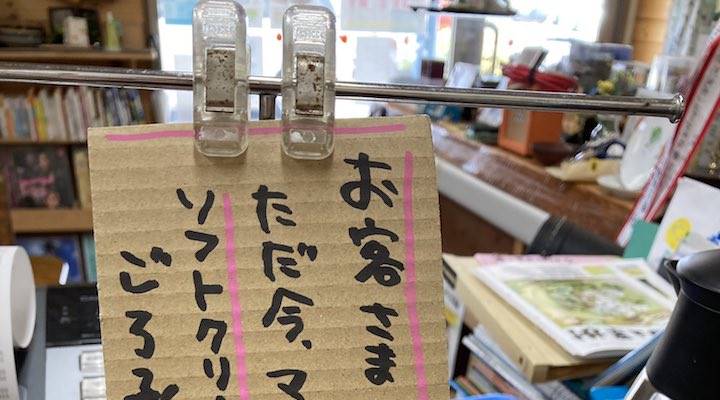 お客さま
ただ今、マ
ソフトクリー
ごろ